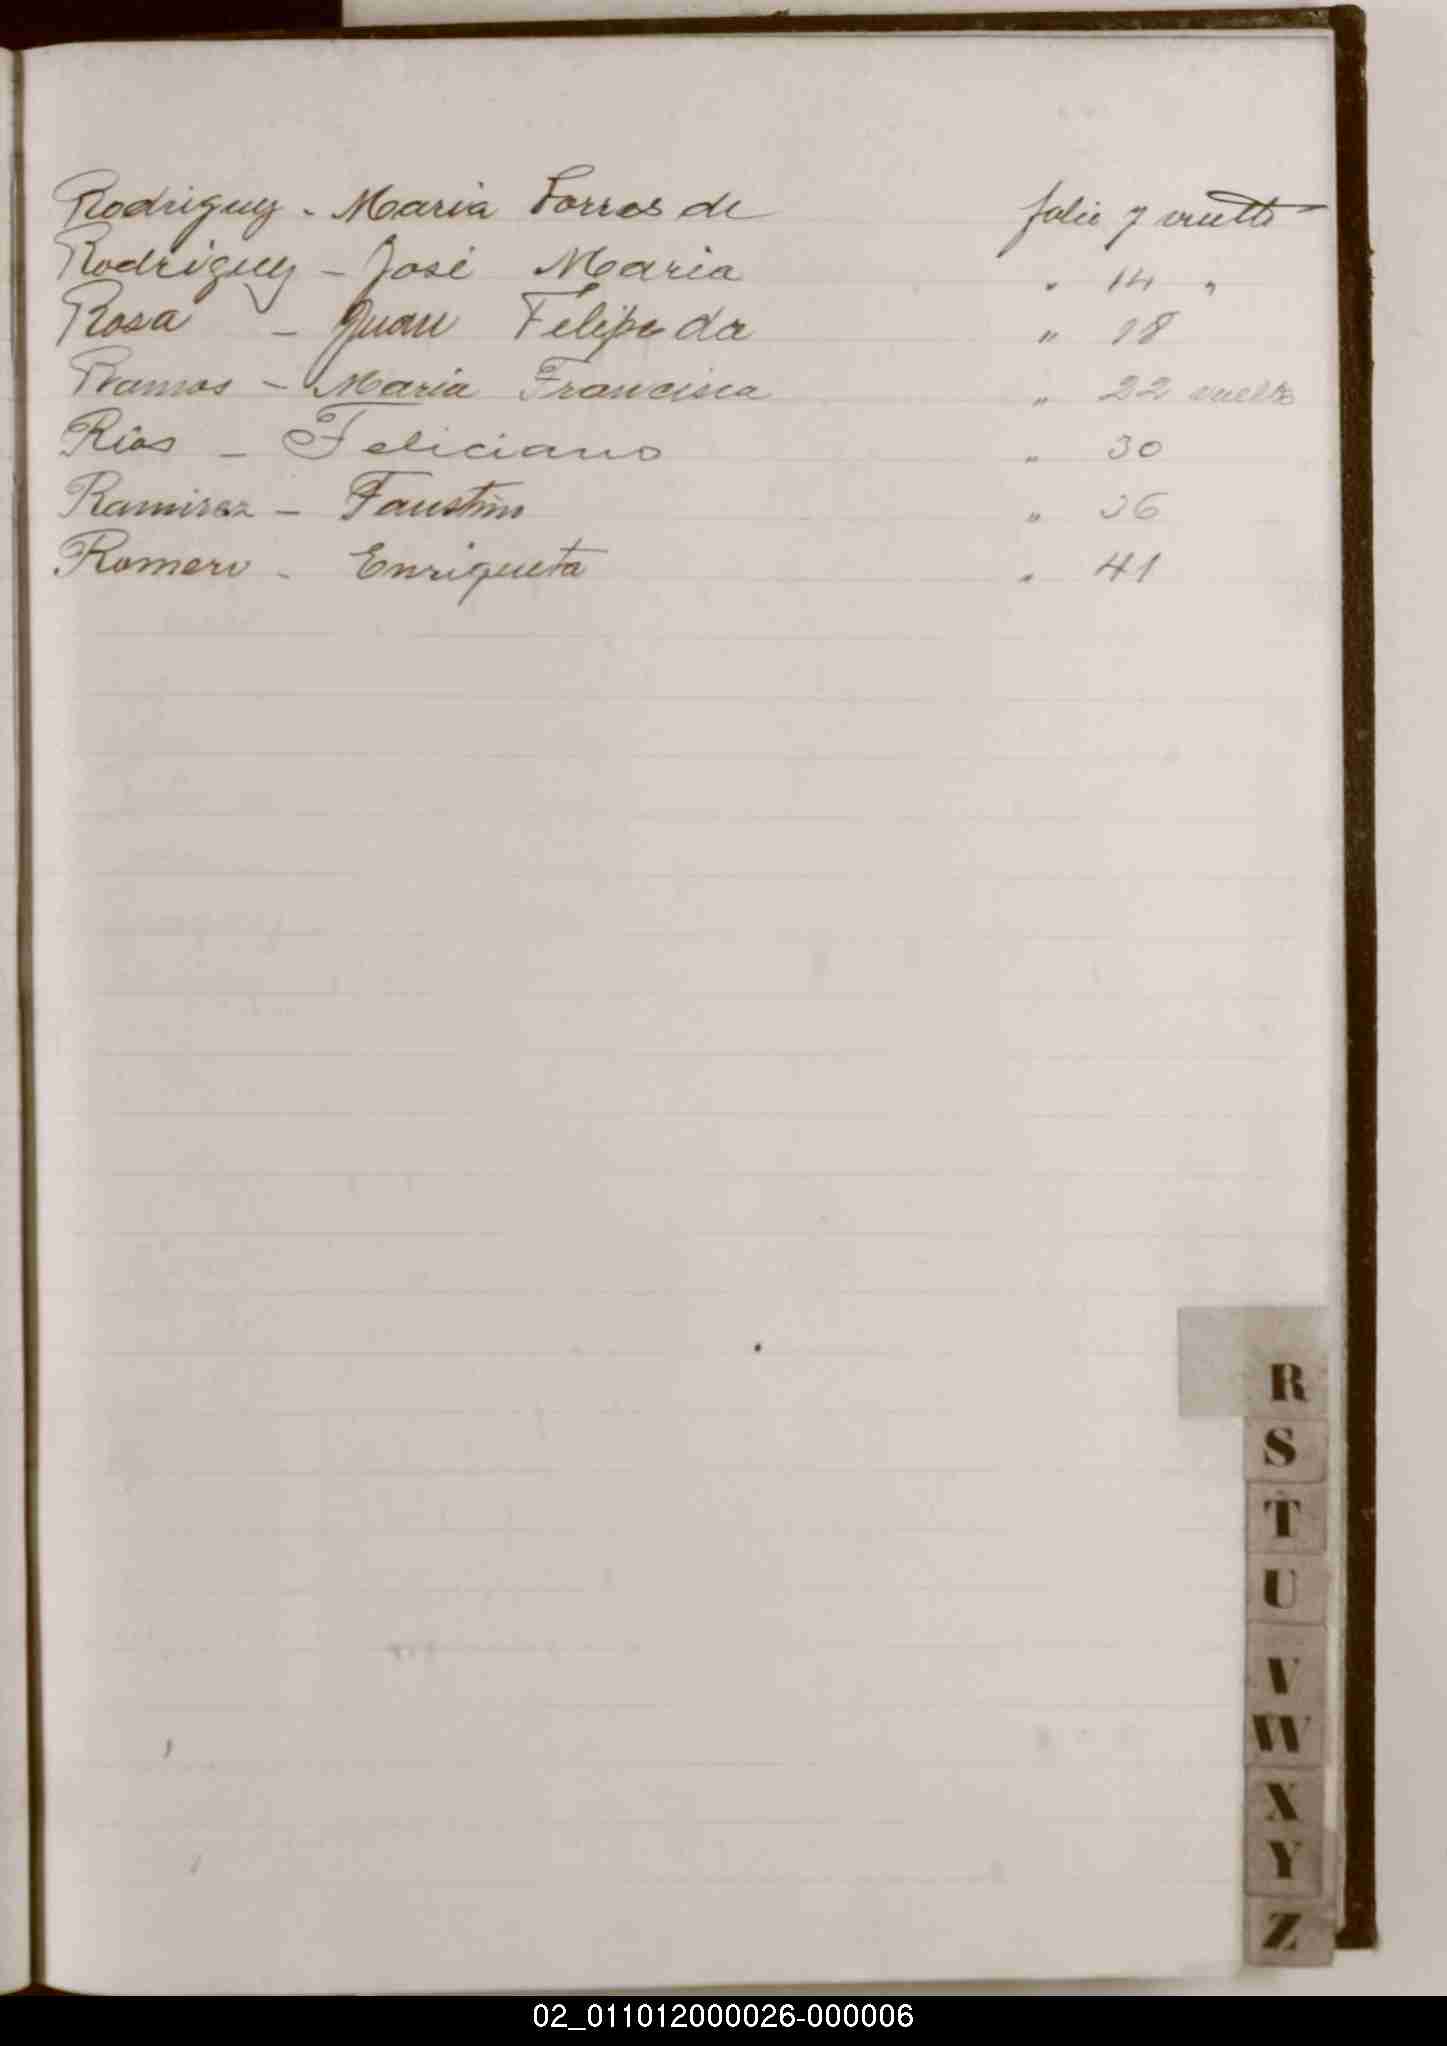 Rodriguez - Maria Torres de folio 7 vuelto
Rodriguez - José Maria " 14 "
Rosa - Juan Felipe da " 18
Ramos - Maria Francisca " 22 vuelto
Rios - Feliciano " 30
Ramirez - Faustino " 36
Romero - Enriqueta " 41
R
S
T
U
V
W
X
Y
Z
02_011012000026-000006